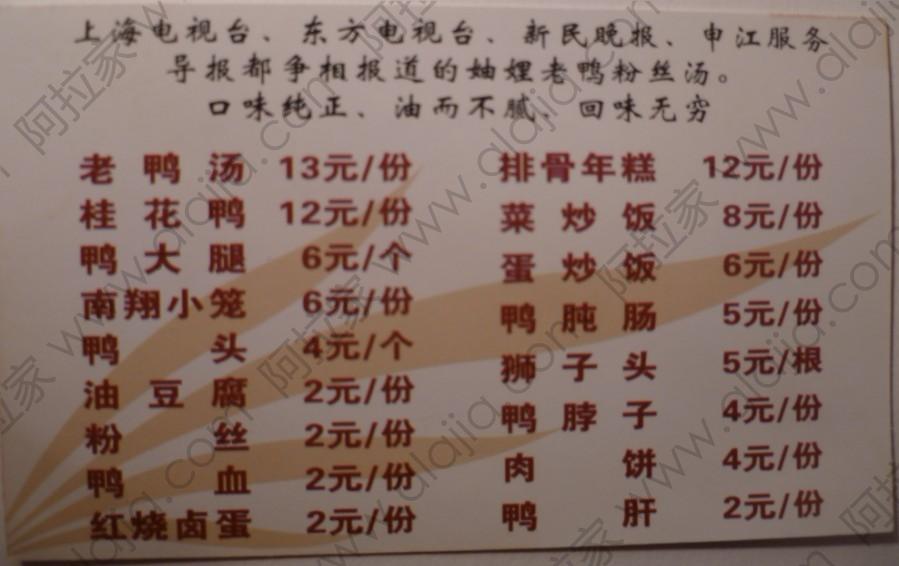 上海电视台、东方电视台、新民晚报、申江服务
导报都争相报道的妯娌老鸭粉丝汤。
口味纯正、油而不腻、回味无穷
老鸭汤 13元/份
桂花鸭 12元/份
鸭大腿 6元/个
南翔小笼 6元/份
鸭头 4元/个
油豆腐 2元/份
粉丝 2元/份
鸭血 2元/份
红烧卤蛋 2元/份
排骨年糕 12元/份
菜炒饭 8元/份
蛋炒饭 6元/份
鸭肫肠 5元/份
狮子头 5元/根
鸭脖子 4元/份
肉饼 4元/份
鸭肝 2元/份
阿拉家 www.alajia.com